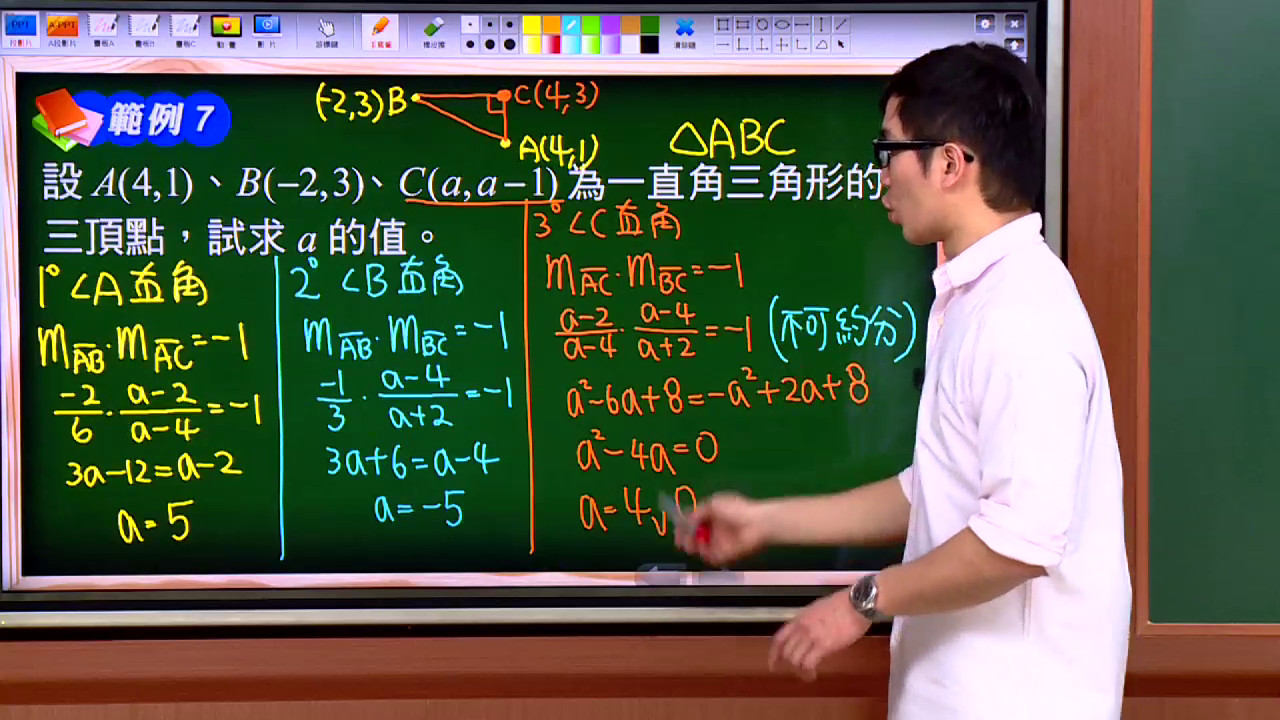 範例 7
(-2,3)B
C(4,3)
A(4,1)
△ABC
設 A(4,1)、B(−2,3)、C(a,a−1) 為一直角三角形的
三頂點，試求 a 的值。
1° ∠A 直角
m_AB · m_AC = -1
-2/6 · (a-2)/(a-4) = -1
3a-12=a-2
a=5
2° ∠B 直角
m_AB · m_BC = -1
-1/3 · (a-4)/(a+2) = -1
3a+6=a-4
a=-5
3° ∠C 直角
m_AC · m_BC = -1
(a-2)/(a-4) · (a-4)/(a+2) = -1 (不可約分)
a²-6a+8=-a²+2a+8
a²-4a=0
a=4、0